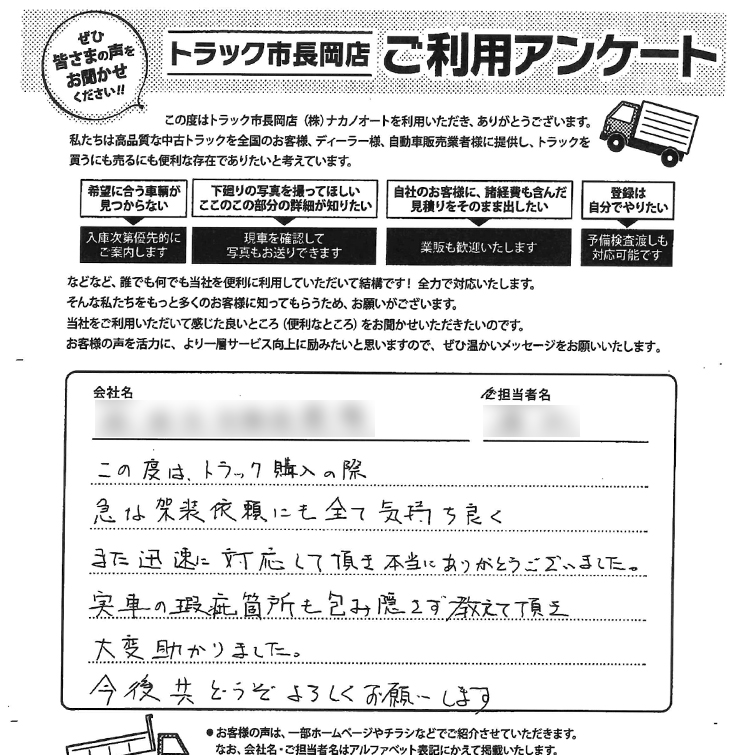 ぜひ
皆さまの声を
お聞かせ
ください!!
トラック市長岡店 ご利用アンケート
この度はトラック市長岡店（株）ナカノオートを利用いただき、ありがとうございます。
私たちは高品質な中古トラックを全国のお客様、ディーラー様、自動車販売業者様に提供し、トラックを
買うにも売るにも便利な存在でありたいと考えています。
希望に合う車輌が
見つからない
入庫次第優先的に
ご案内します
下廻りの写真を撮ってほしい
ここのこの部分の詳細が知りたい
現車を確認して
写真もお送りできます
自社のお客様に、諸経費も含んだ
見積りをそのまま出したい
業販も歓迎いたします
登録は
自分でやりたい
予備検査渡しも
対応可能です
などなど、誰でも何でも当社を便利に利用していただいて結構です！全力で対応いたします。
そんな私たちをもっと多くのお客様に知ってもらうため、お願いがございます。
当社をご利用いただいて感じた良いところ（便利なところ）をお聞かせいただきたいのです。
お客様の声を活力に、より一層サービス向上に励みたいと思いますので、ぜひ温かいメッセージをお願いいたします。
会社名
ご担当者名
この度は、トラック購入の際
急な架装依頼にも全て気持ち良く
また迅速に対応して頂き本当にありがとうございました。
実車の瑕疵箇所も包み隠さず教えて頂き
大変助かりました。
今後共どうぞよろしくお願いします
●お客様の声は、一部ホームページやチラシなどでご紹介させていただきます。
なお、会社名・ご担当者名はアルファベット表記にかえて掲載いたします。